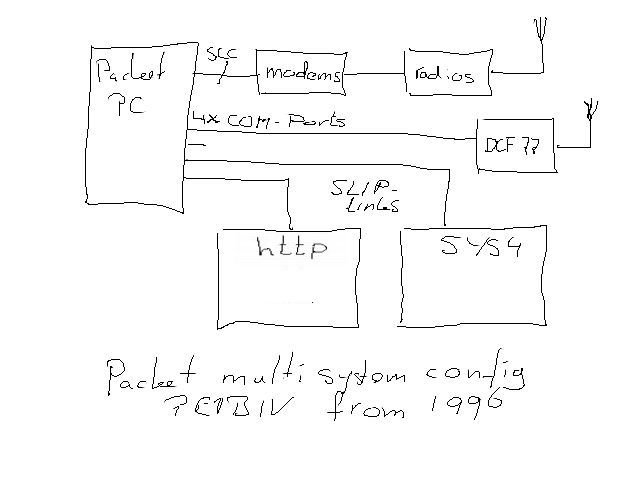 Packet
PC
SCC
modems
radios
4x COM-Ports
DCF 77
SLIP-
links
http
SYS4
Packet multi system config
PE1BIV from 1996